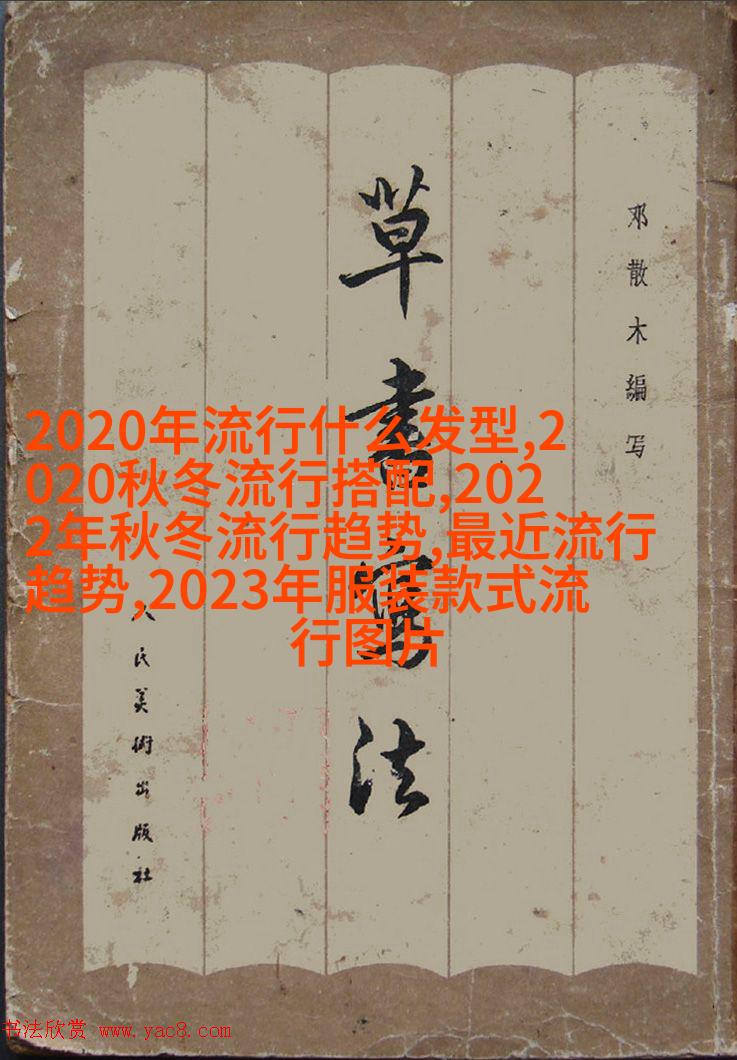 邓散木编写
草书写法
人民美術出版社
2020年流行什么发型,2
020秋冬流行搭配,202
2年秋冬流行趋势,最近流行
趋势,2023年服装款式流
行图片
书法欣赏 www.yac8.com